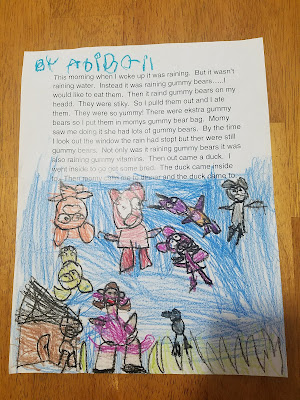 BY
This morning when I woke up it was raining. But it wasn't
raining water. Instead it was raining gummy bears.....I
would like to eat them. Then it raind gummy bears on my
headd. They were stiky. So I pulld them out and I ate
them. They were so yummy! There were ekstra gummy
bears so I put them in momys gummy bear bag. Momy
saw me doing it she had lots of gummy bears. By the time
I look out the window the rain had stopt but ther were still
gummy bears. Not only was it raining gummy bears it was
also raining gummy vitamins. Then out came a duck. I
went inside to go get some bred. The duck came inside
and the duck came to